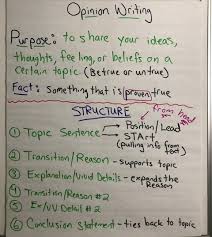 Opinion Writing
Purpose: to share your ideas,
thoughts, feeling, or beliefs on a
certain topic (Be true or untrue)
Fact: Something that is proven true
STRUCTURE
from head
① Topic Sentence → Position/Lead
→ STArt
(pulling info from text)
② Transition/Reason - supports topic
③ Explanation/Vivid Details - expands the Reason
④ Transition/Reason #2
⑤ Ex/V.V. Detail #2
⑥ Conclusion Statement - ties back to topic